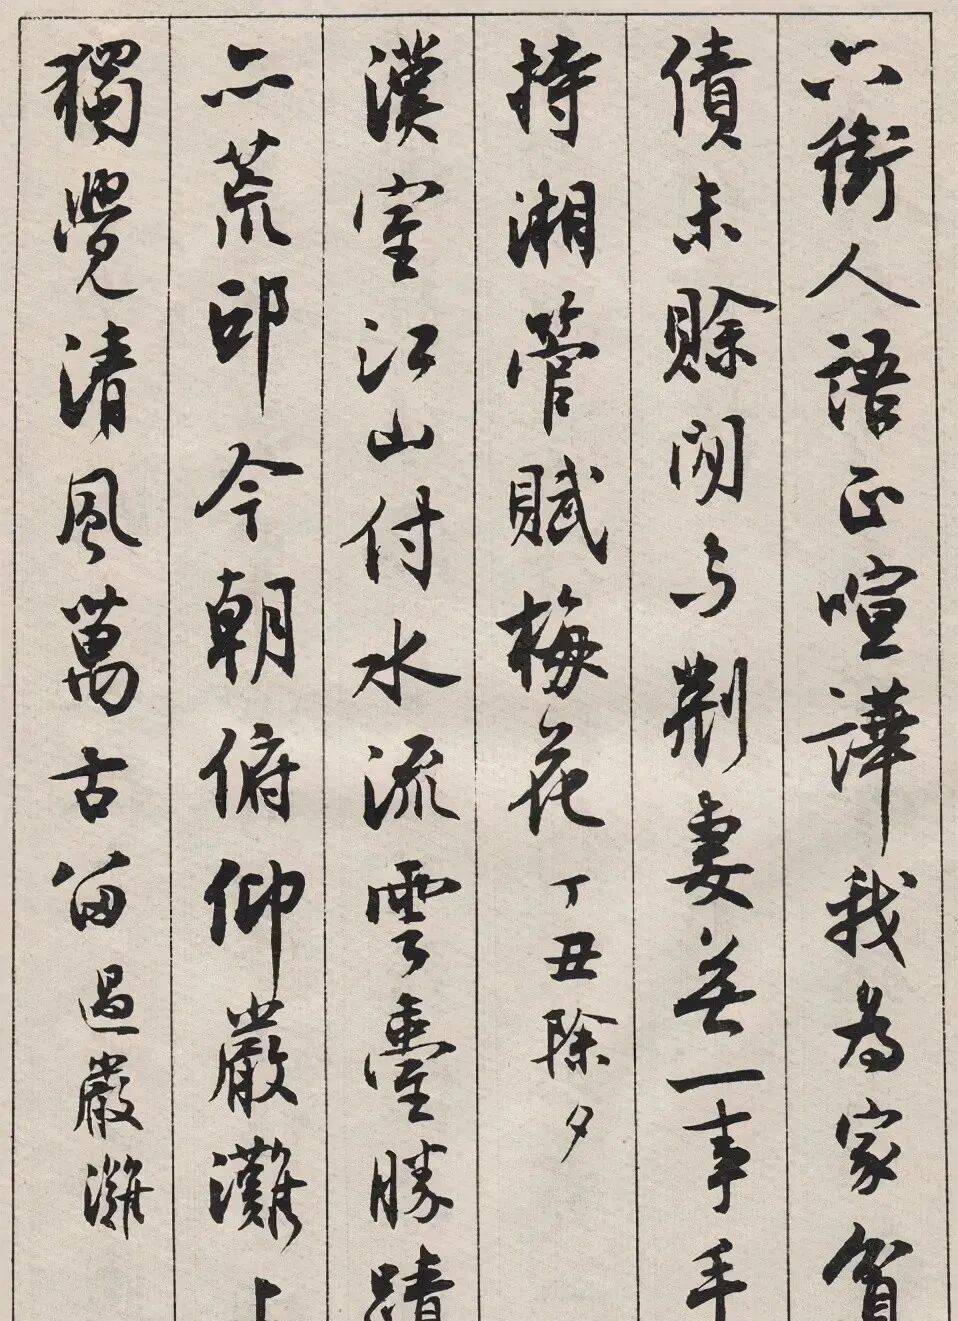 六街人語正喧譁我為家貧
債未賒閒與荆妻無一事手
持湘管賦梅花丁丑除夕
漢室江山付水流雲臺勝蹟
亦荒邱今朝俯仰嚴灘上
獨覺清風萬古留過嚴灘